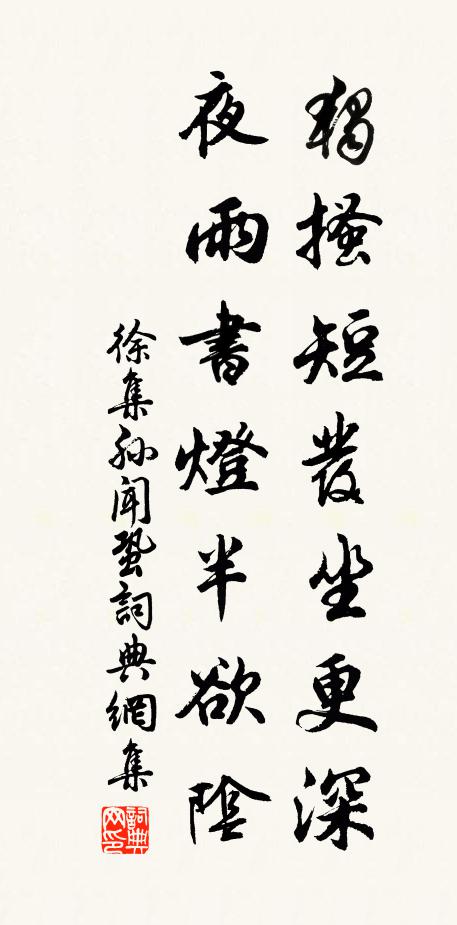 獨搔短發坐更深
夜雨書燈半欲陰
徐集孫聞蛩詞典網集
詞典網印